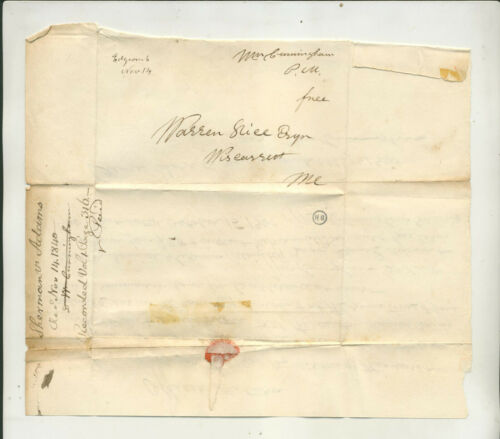 Edgcomb
Nov 14
Wm Cunningham
P. M.
free
Warren Rice Esqr
Wiscassett
Me
Sherman vs Adams
Rec'd Nov 14. 1840
Wm Cunningham
Recorded Vol 1 Page 316
Paid